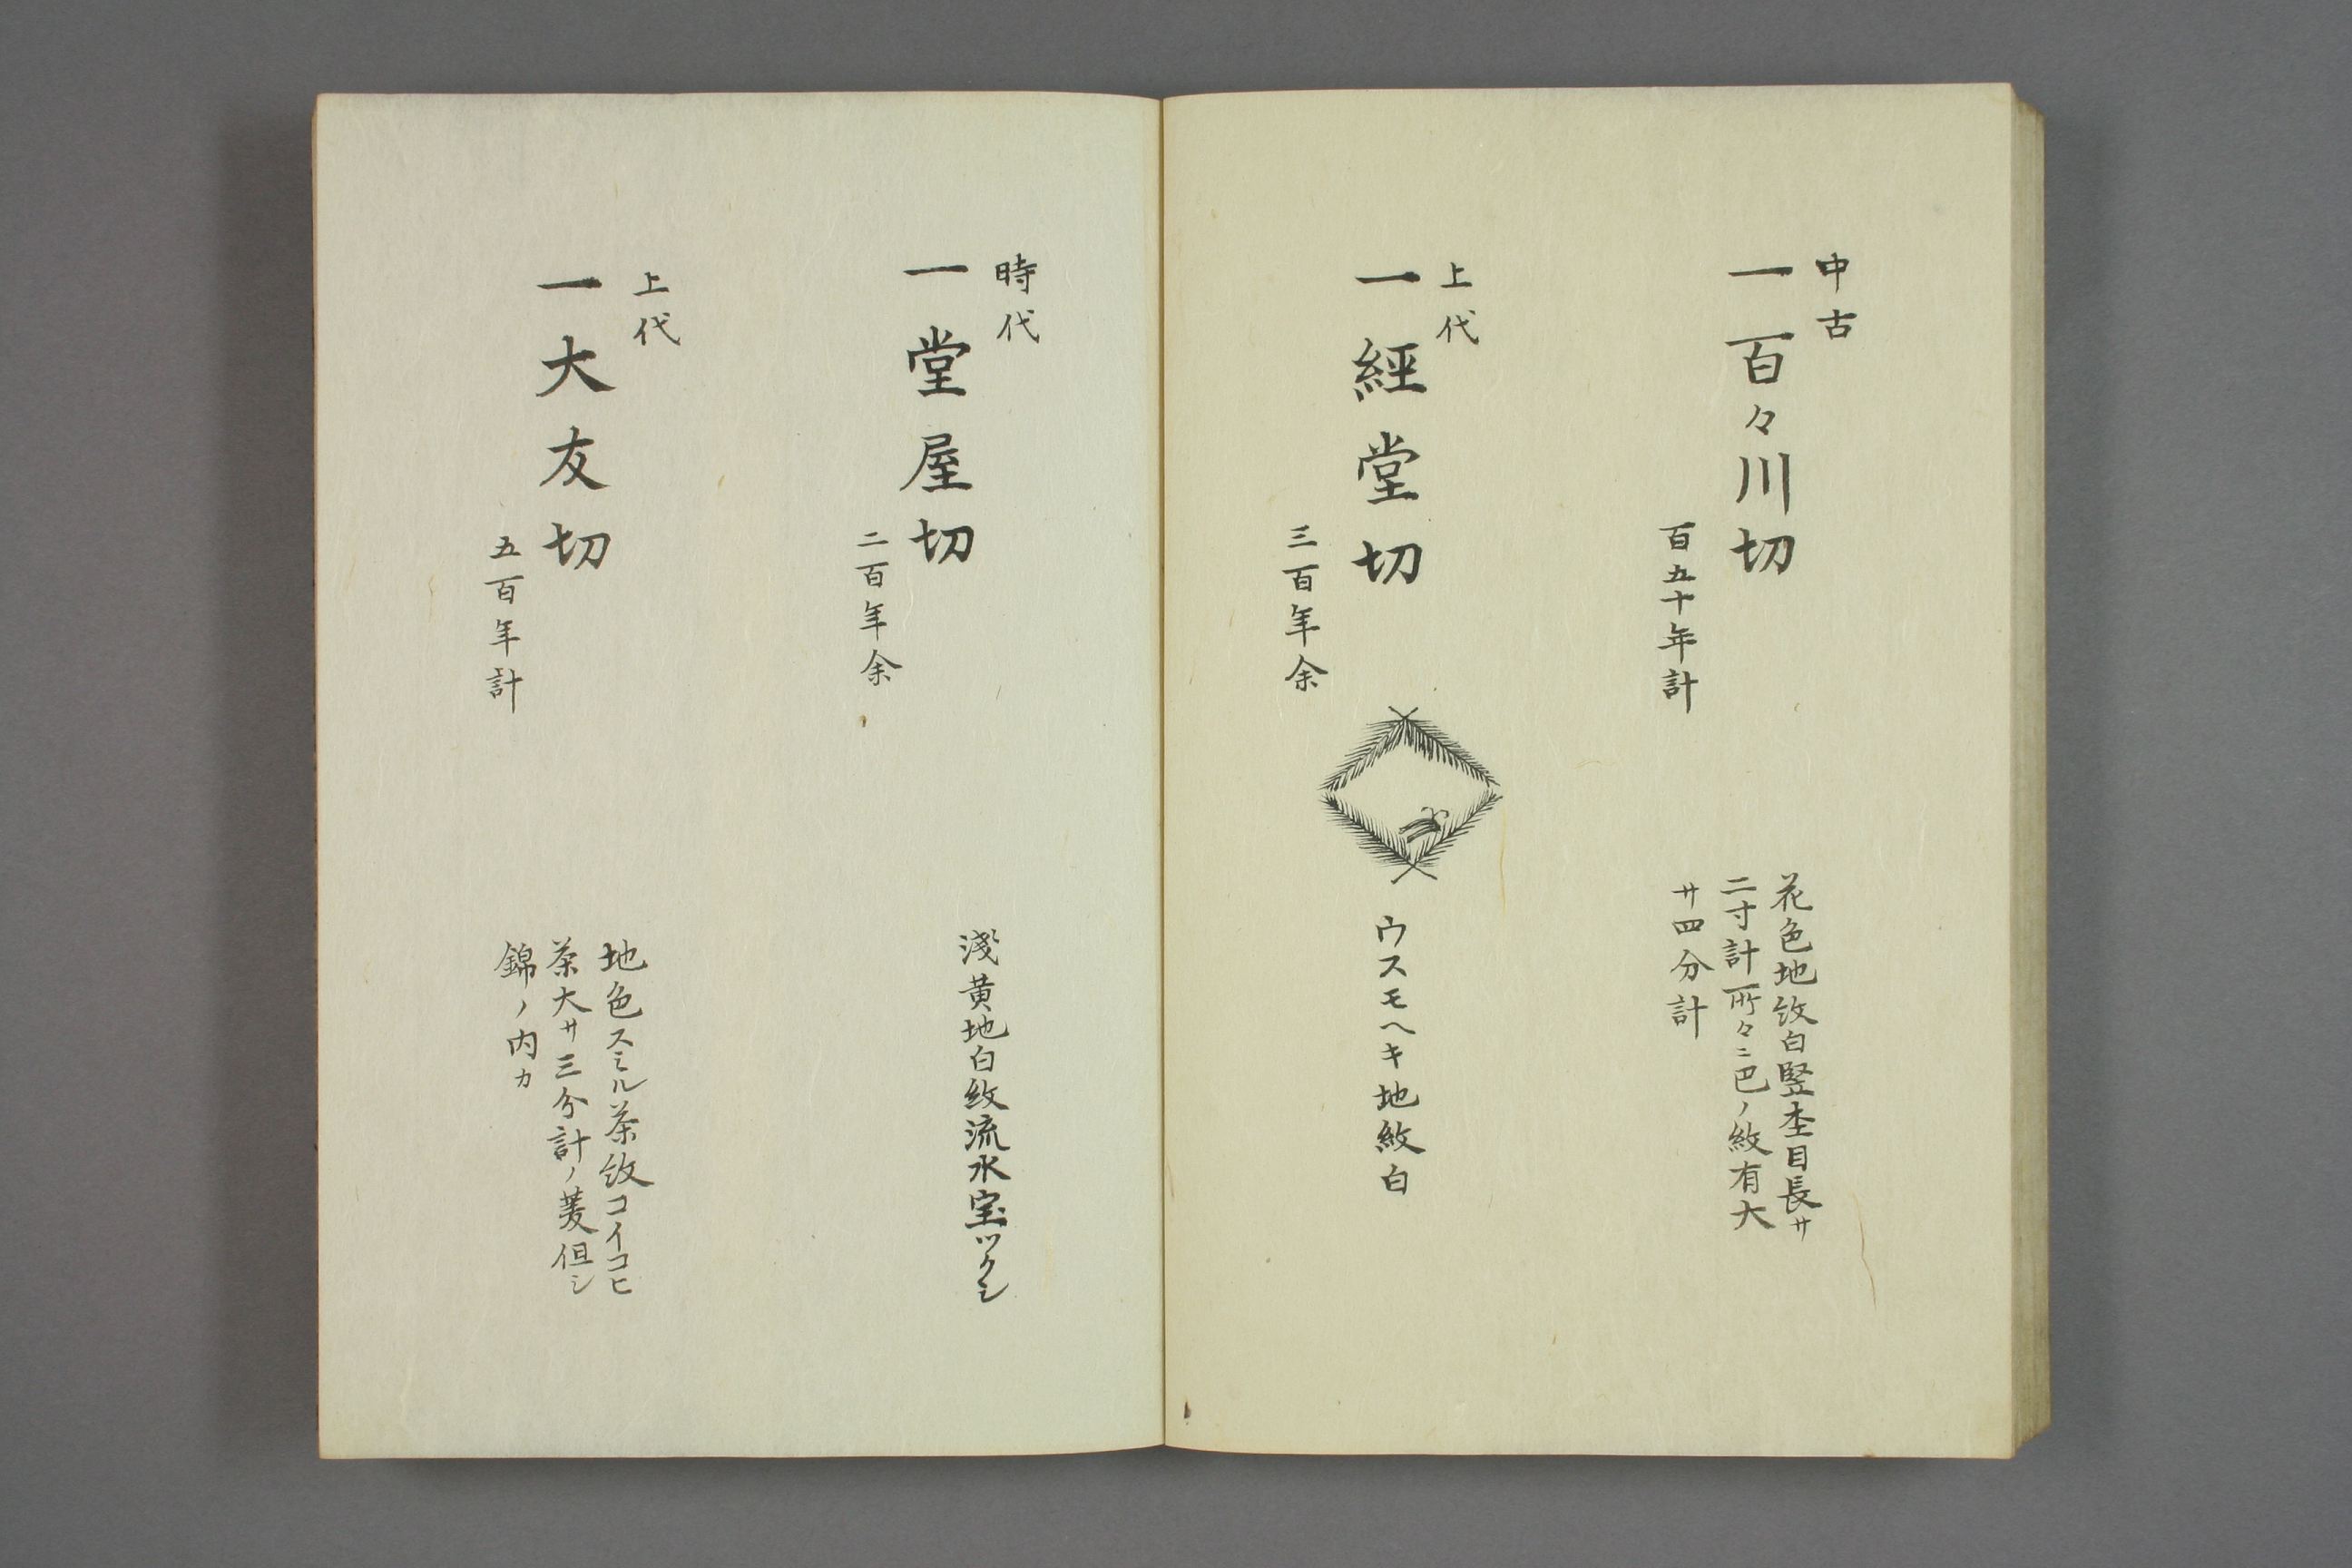 中古
一百々川切
百五十年計
花色地紋白竪杢目長サ
二寸計所々ニ巴ノ紋有大
サ四分計
上代
一經堂切
三百年余
ウスモヘキ地紋白
時代
一堂屋切
二百年余
淺黄地白紋流水宝ツクシ
上代
一大友切
五百年計
地色スミル茶紋コイコヒ
茶大サ三分計ノ菱但シ
錦ノ内カ